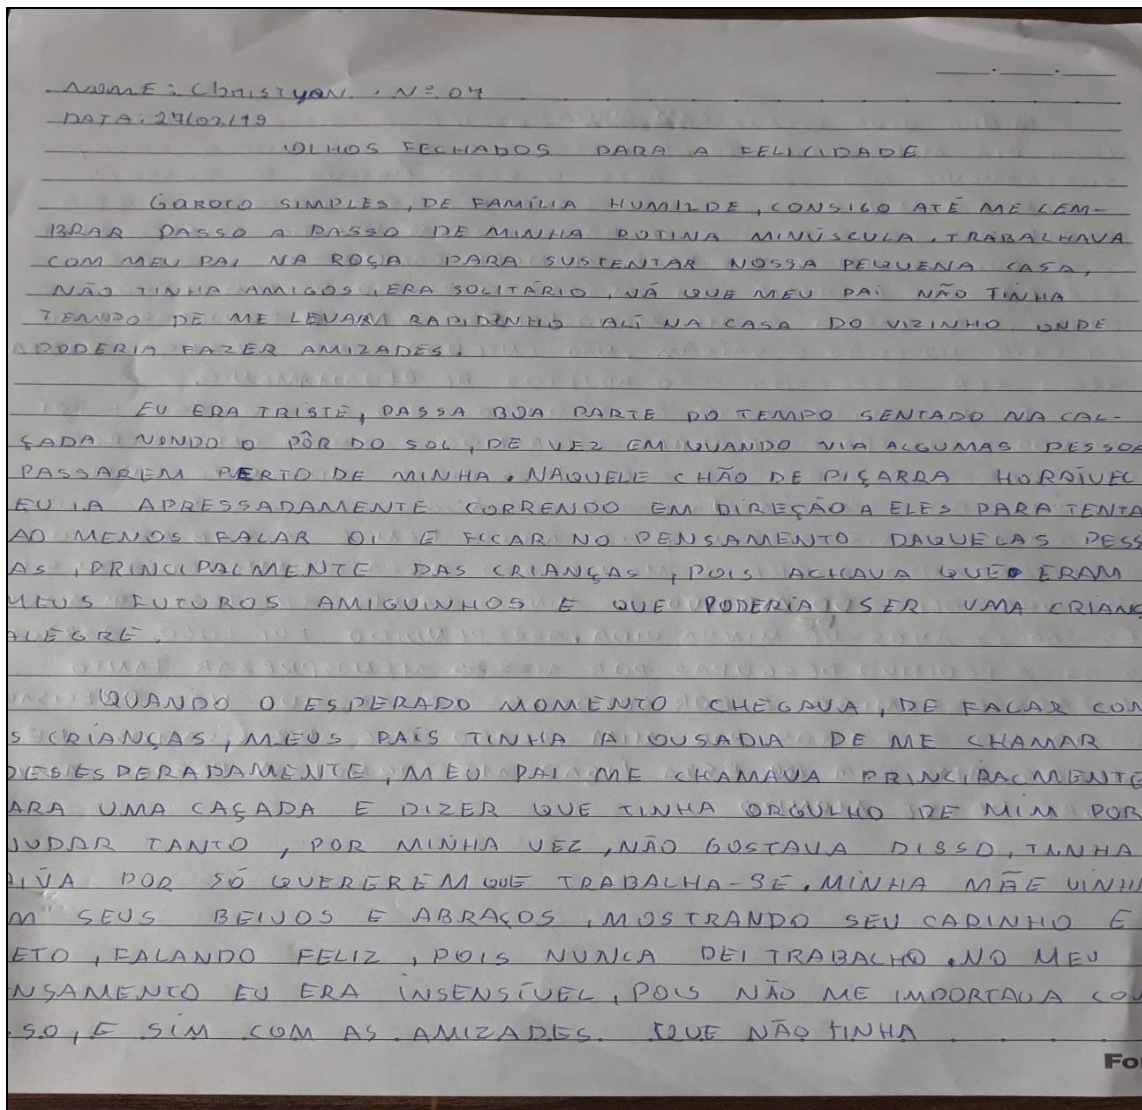 NOME: Christyan. Nº 07
DATA: 27/02/19
OLHOS FECHADOS PARA A FELICIDADE
GAROTO SIMPLES, DE FAMÍLIA HUMILDE, CONSIGO ATÉ ME LEM-
BRAR PASSO A PASSO DE MINHA ROTINA MINÚSCULA, TRABALHAVA
COM MEU PAI NA ROÇA PARA SUSTENTAR NOSSA PEQUENA CASA,
NÃO TINHA AMIGOS, ERA SOLITÁRIO, JÁ QUE MEU PAI NÃO TINHA
TEMPO DE ME LEVAR RAPIDINHO ALÍ NA CASA DO VIZINHO ONDE
PODERIA FAZER AMIZADES.
EU ERA TRISTE, PASSA BOA PARTE DO TEMPO SENTADO NA CAL-
ÇADA VENDO O PÔR DO SOL, DE VEZ EM QUANDO VIA ALGUMAS PESSOA
PASSAREM PERTO DE MINHA. NAQUELE CHÃO DE PIÇARRA HORRÍVEL
EU IA APRESSADAMENTE CORRENDO EM DIREÇÃO A ELES PARA TENTA
AO MENOS FALAR OI E FICAR NO PENSAMENTO DAQUELAS PESS
AS, PRINCIPALMENTE DAS CRIANÇAS, POIS ACHAVA QUE ERAM
MEUS FUTUROS AMIGUINHOS E QUE PODERIA SER UMA CRIANÇ
ALEGRE.
QUANDO O ESPERADO MOMENTO CHEGAVA, DE FALAR COM
S CRIANÇAS, MEUS PAIS TINHA A OUSADIA DE ME CHAMAR
DESESPERADAMENTE, MEU PAI ME CHAMAVA PRINCIPALMENTE
ARA UMA CAÇADA E DIZER QUE TINHA ORGULHO DE MIM POR
JUDAR TANTO, POR MINHA VEZ, NÃO GOSTAVA DISSO, TINHA
AIVA POR SÓ QUEREREM QUE TRABALHA-SE. MINHA MÃE VINHA
M SEUS BEIJOS E ABRAÇOS, MOSTRANDO SEU CARINHO E
ETO, FALANDO FELIZ, POIS NUNCA DEI TRABALHO. NO MEU
NSAMENTO EU ERA INSENSÍVEL, POIS NÃO ME IMPORTAVA CO
SSO, E SIM COM AS AMIZADES QUE NÃO TINHA
For